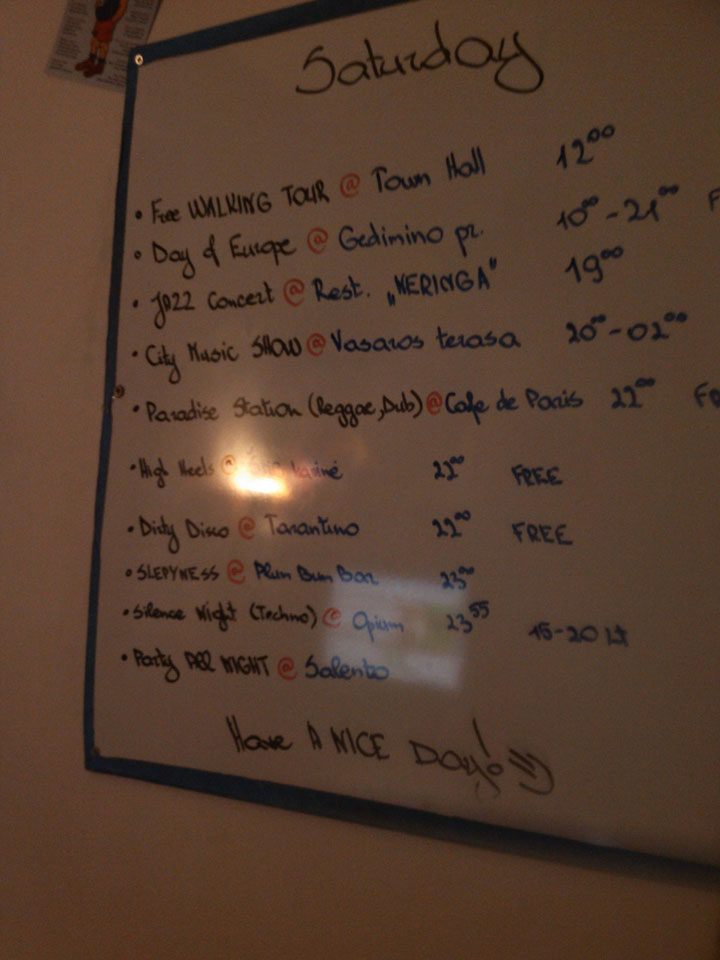 Saturday
• Free WALKING TOUR @ Town Hall 12⁰⁰
• Day of Europe @ Gedimino pr. 10⁰⁰-21⁰⁰ F
• JAZZ Concert @ Rest. „NERINGA" 19⁰⁰
• City Music SHOW @ Vasaros terasa 20⁰⁰-02⁰⁰
• Paradise Station (Reggae, Dub) @ Cafe de Paris 22⁰⁰ FR
• High Heels @ 22⁰⁰ FREE
• Dirty Disco @ Tarantino 22⁰⁰ FREE
• SLEPYNESS @ Plum Bum Bar 23⁰⁰
• Silence Night (Techno) @ Opium 23⁵⁵ 15-20 Lt
• Party ALL NIGHT @ Salento
Have A NICE Day! =)